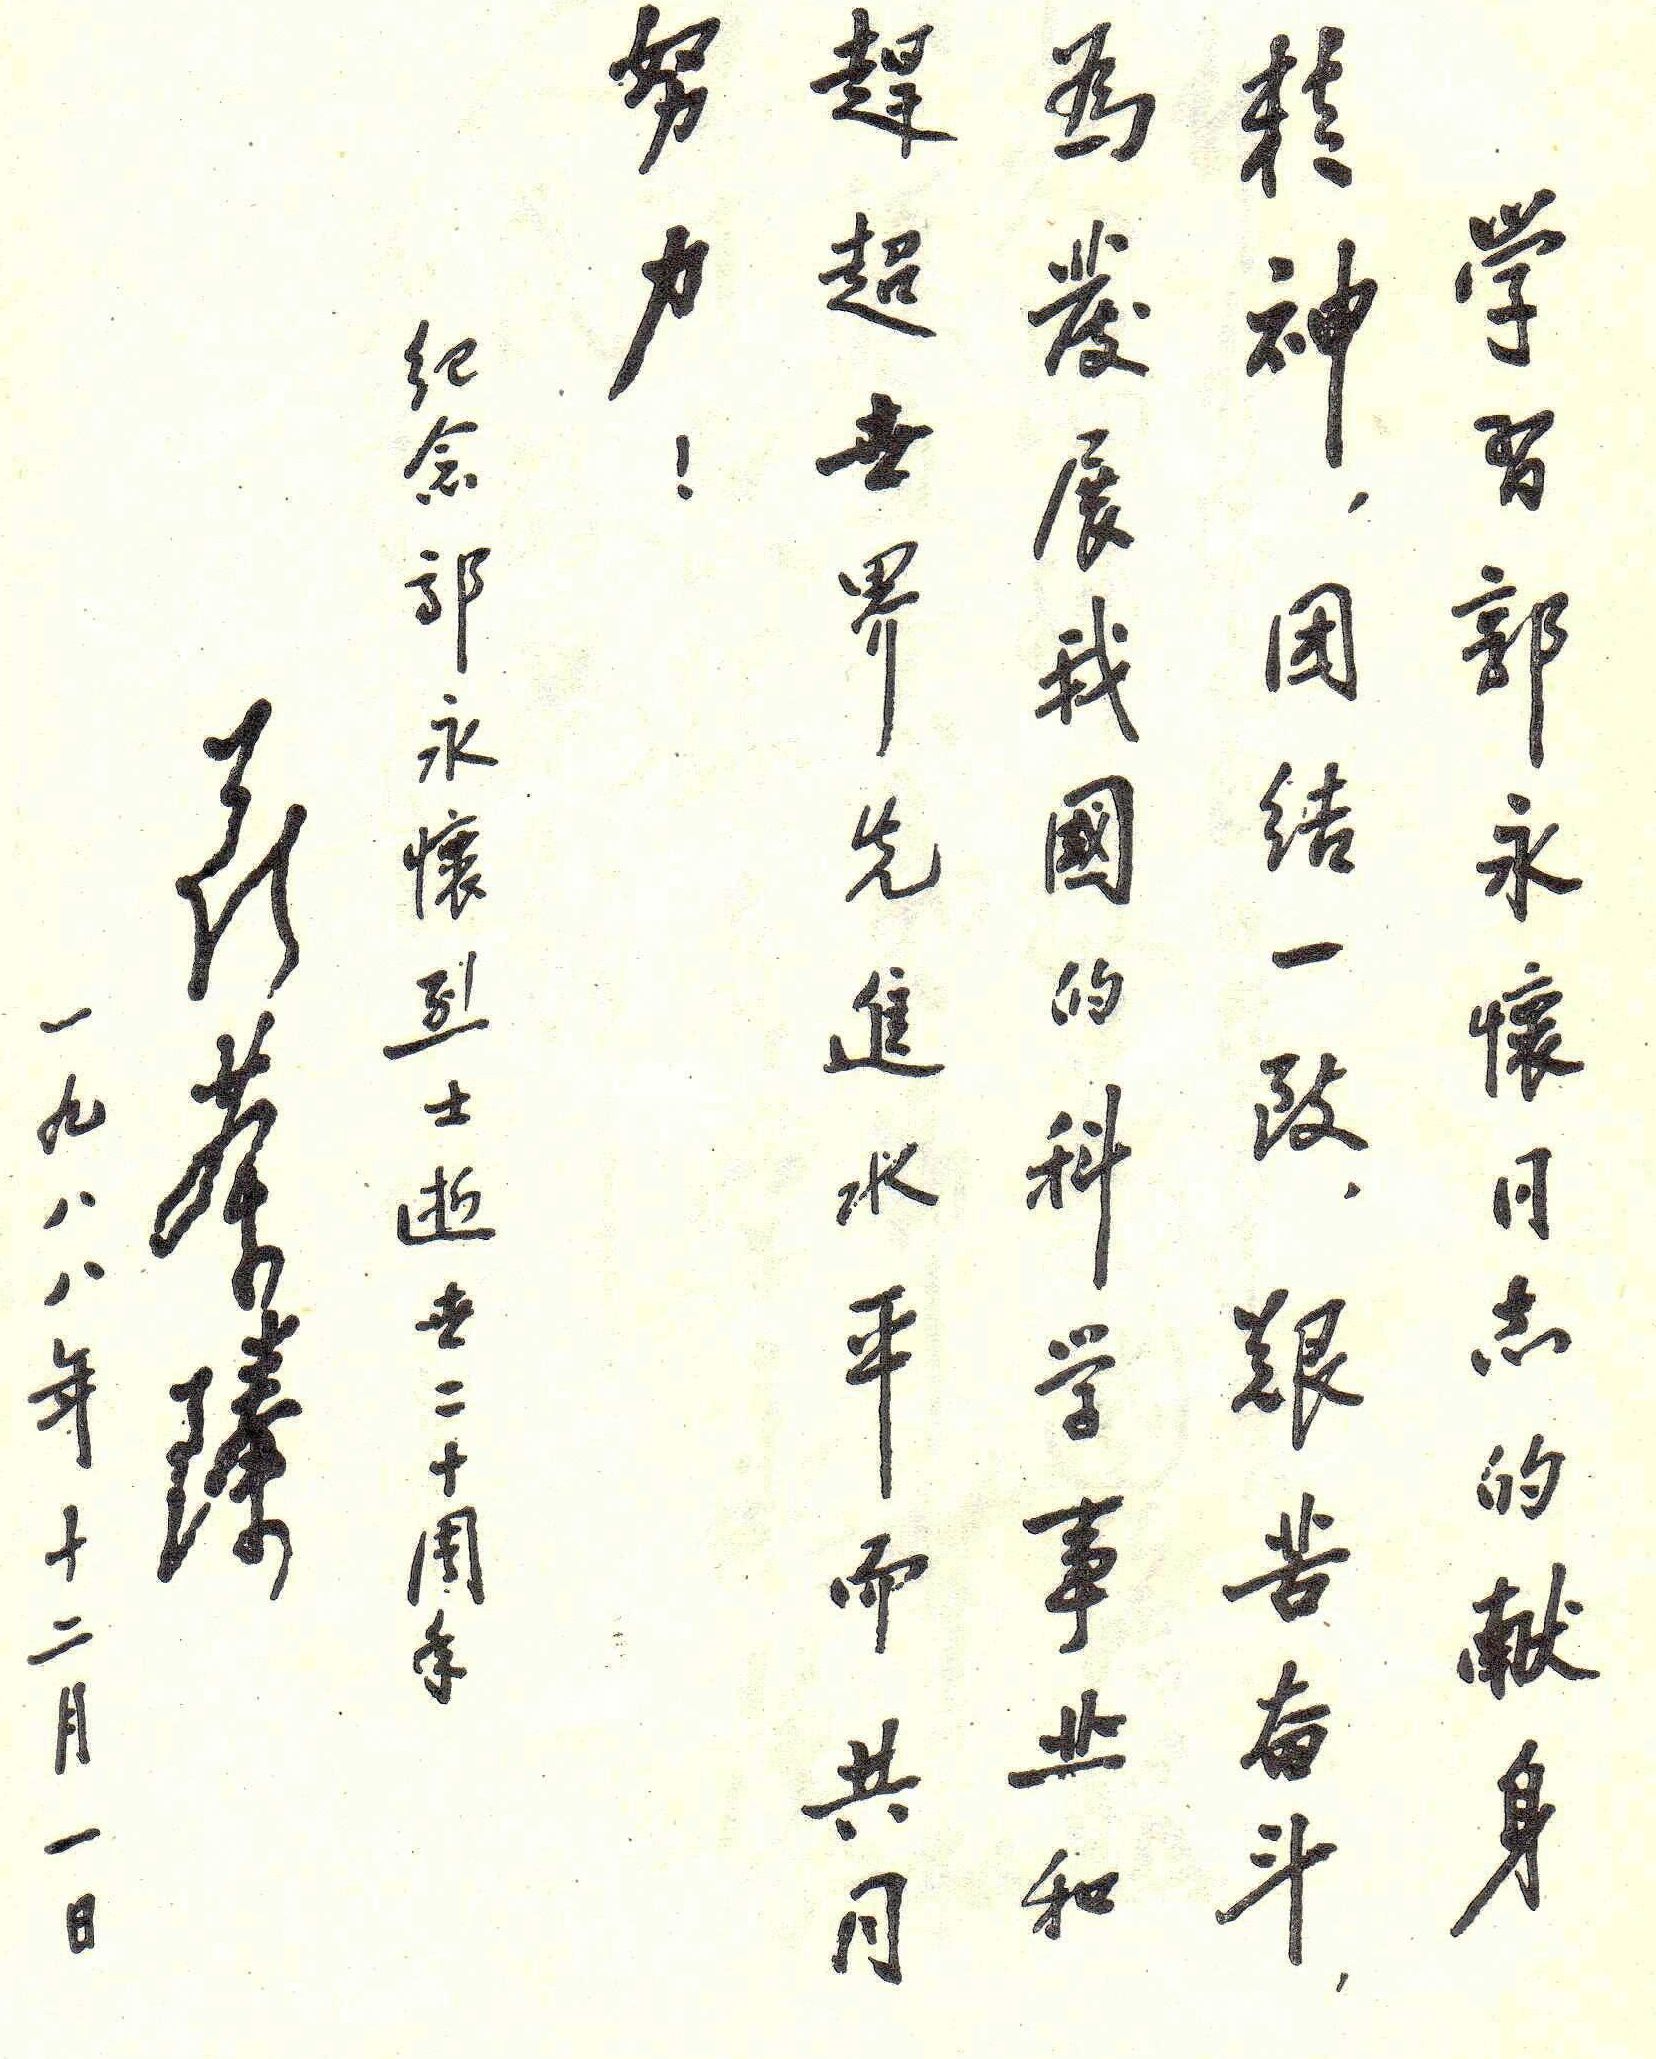 学習郭永懷同志的献身
精神，团结一致，艱苦奋斗，
為發展我國的科学事业和
趕超世界先進水平而共同
努力！
纪念郭永懷烈士逝世二十周年
聂荣臻
一九八八年十二月一日